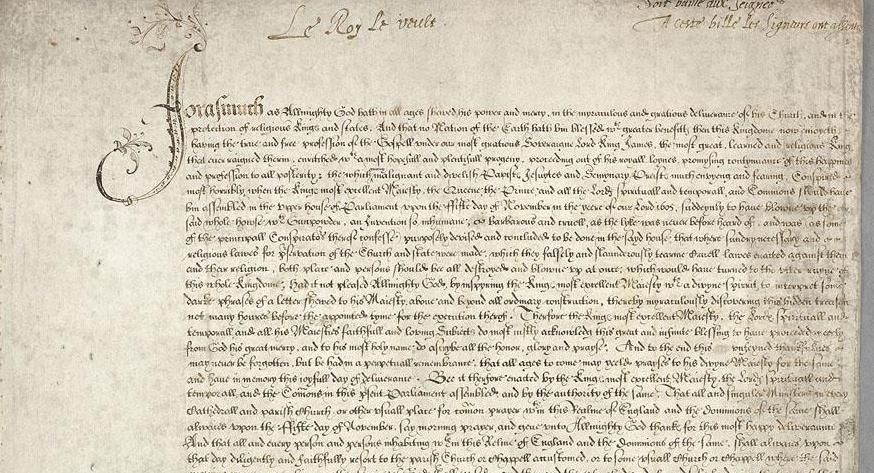 Soit baille aux Seigne
Le Roy le veult.
A ceste bille les Signeurs ont assent
Forasmuch as Allmighty God hath in all ages shewed his power and mercy, in the myraculous and gratious deliverance of his Church, and in the
protection of religious Kings and states, And that no Nation of the Earth hath bin blessed wth greater benefitts then this Kingdome now enioyeth
having the true and free profession of the Gospell under our most gratious Soveraigne Lord King James, the most great, learned and religious King
that ever raigned therin, enritched wth a most hopefull and plentifull progeny, proceeding out of his royall loynes, promysing contynuance of this happines
and profession to all posterity: the which malignant and divelish Papists, Jesuytes and Semynary Preists much envyeng and fearing, Conspired
most horribly, when the Kings most excellent Maiesty, the Queene the Prince and all the Lords spirituall and temporall, and Commons should have
bin assembled in the Upper house of Parliament upon the fifte day of November in the yeere of our Lord 1605, suddeynly to have blowne up the
said whole howse wth Gunpowder, an Invention so inhumane, barbarous and cruell, as the lyke was never before heard of, and was as some
of the principall Conspirators therof confesse purposely devised and concluded to be done in the sayd house, that where sundry necessary and
religious lawes for pservation of the Church and state were made, which they falsely and slaunderously tearme Cruell lawes enacted against them
and their religion, both place and persons should bee all destroyed and blowne up at once, which would have turned to the utter ruyne of
this whole Kingdome, Had it not pleased Allmighty God, by inspyring the Kings most excellent Maiesty wth a divyne spirit, to interpret some
darke phrases of a letter shewed to his Maiesty, above and beyond all ordinary construction, therby myraculously discovering this hidden treason
not many howres before the appoynted tyme for the execution therof. Therfore the Kings most excellent Maiesty, the Lords Spirituall and
temporall and all his Maiesties faithfull and loving Subiects do most iustly acknowledg this great and infinite blessing to have proceeded meerly
from God his great mercy, and to his most holy name do ascrybe all the honor, glory and prayse. And to the end this unfeyned thankfullnes
may never be forgotten, but be had in a perpetuall remembrance, that all ages to come may yeeld prayses to his divyne Maiesty for the same
and have in memory this ioyfull day of deliverance. Bee it therfore enacted by the Kings most excellent Maiesty, the Lords spirituall and
temporall, and the Comons in this psent Parliament assembled and by the authority of the same, That all and singuler Ministers in every
Cathedrall and parish Church, or other usuall place for comon prayer wthin this Realme of England and the Dominions of the same shall
allwaies upon the fifte day of November, say morning prayer, and geve unto Allmighty God thanks for this most happy deliveraunce
And that all and every person and persons inhabiting wthin this Relme of England and the Dominions of the same, shall allwaies upon
that day diligently and faithfully resort to the parish Church or Chappell accustomed, or to some usuall Church or Chappell where the said